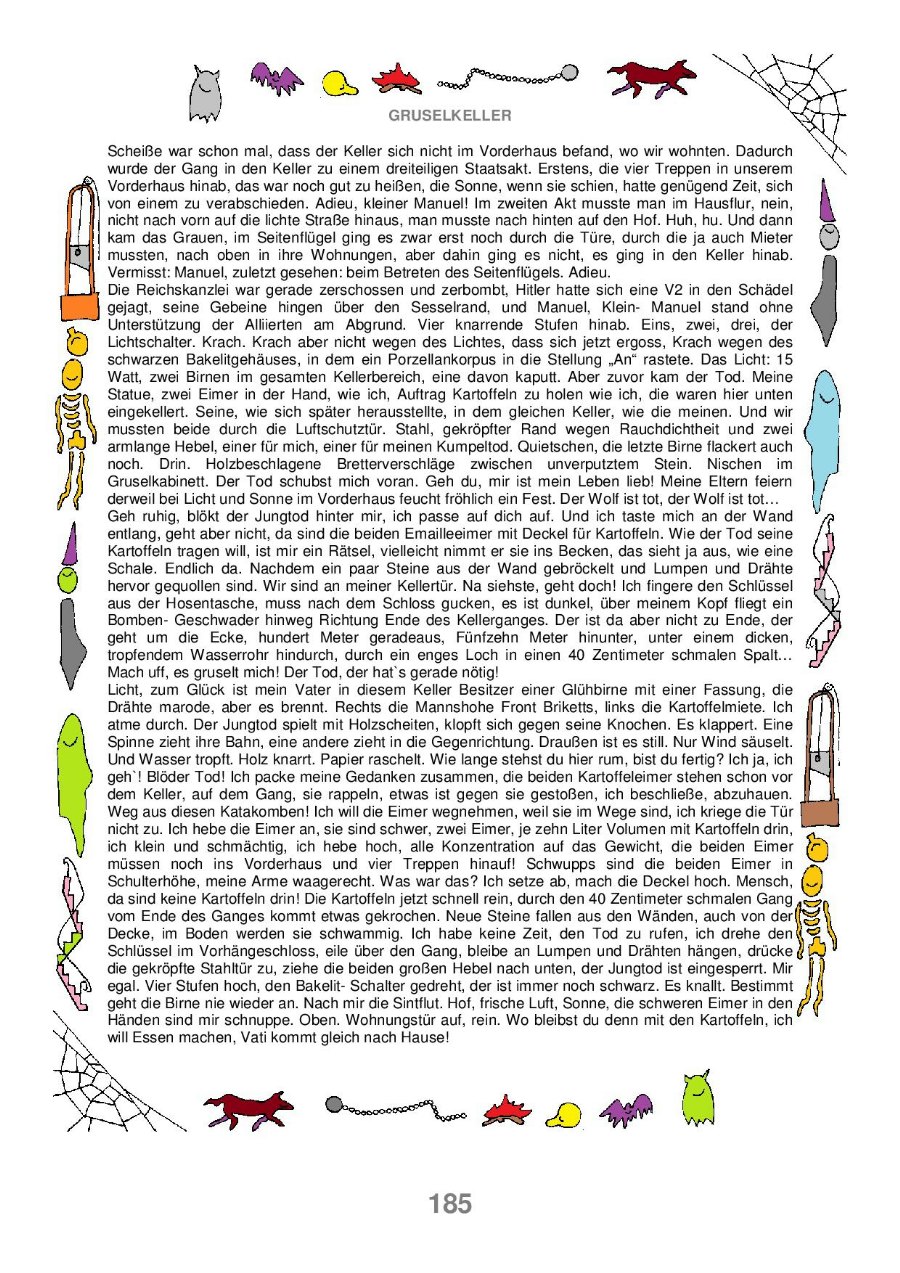 GRUSELKELLER
Scheiße war schon mal, dass der Keller sich nicht im Vorderhaus befand, wo wir wohnten. Dadurch
wurde der Gang in den Keller zu einem dreiteiligen Staatsakt. Erstens, die vier Treppen in unserem
Vorderhaus hinab, das war noch gut zu heißen, die Sonne, wenn sie schien, hatte genügend Zeit, sich
von einem zu verabschieden. Adieu, kleiner Manuel! Im zweiten Akt musste man im Hausflur, nein,
nicht nach vorn auf die lichte Straße hinaus, man musste nach hinten auf den Hof. Huh, hu. Und dann
kam das Grauen, im Seitenflügel ging es zwar erst noch durch die Türe, durch die ja auch Mieter
mussten, nach oben in ihre Wohnungen, aber dahin ging es nicht, es ging in den Keller hinab.
Vermisst: Manuel, zuletzt gesehen: beim Betreten des Seitenflügels. Adieu.
Die Reichskanzlei war gerade zerschossen und zerbombt, Hitler hatte sich eine V2 in den Schädel
gejagt, seine Gebeine hingen über den Sesselrand, und Manuel, Klein- Manuel stand ohne
Unterstützung der Alliierten am Abgrund. Vier knarrende Stufen hinab. Eins, zwei, drei, der
Lichtschalter. Krach. Krach aber nicht wegen des Lichtes, dass sich jetzt ergoss, Krach wegen des
schwarzen Bakelitgehäuses, in dem ein Porzellankorpus in die Stellung „An“ rastete. Das Licht: 15
Watt, zwei Birnen im gesamten Kellerbereich, eine davon kaputt. Aber zuvor kam der Tod. Meine
Statue, zwei Eimer in der Hand, wie ich, Auftrag Kartoffeln zu holen wie ich, die waren hier unten
eingekellert. Seine, wie sich später herausstellte, in dem gleichen Keller, wie die meinen. Und wir
mussten beide durch die Luftschutztür. Stahl, gekröpfter Rand wegen Rauchdichtheit und zwei
armlange Hebel, einer für mich, einer für meinen Kumpeltod. Quietschen, die letzte Birne flackert auch
noch. Drin. Holzbeschlagene Bretterverschläge zwischen unverputztem Stein. Nischen im
Gruselkabinett. Der Tod schubst mich voran. Geh du, mir ist mein Leben lieb! Meine Eltern feiern
derweil bei Licht und Sonne im Vorderhaus feucht fröhlich ein Fest. Der Wolf ist tot, der Wolf ist tot…
Geh ruhig, blökt der Jungtod hinter mir, ich passe auf dich auf. Und ich taste mich an der Wand
entlang, geht aber nicht, da sind die beiden Emailleeimer mit Deckel für Kartoffeln. Wie der Tod seine
Kartoffeln tragen will, ist mir ein Rätsel, vielleicht nimmt er sie ins Becken, das sieht ja aus, wie eine
Schale. Endlich da. Nachdem ein paar Steine aus der Wand gebröckelt und Lumpen und Drähte
hervor gequollen sind. Wir sind an meiner Kellertür. Na siehste, geht doch! Ich fingere den Schlüssel
aus der Hosentasche, muss nach dem Schloss gucken, es ist dunkel, über meinem Kopf fliegt ein
Bomben- Geschwader hinweg Richtung Ende des Kellerganges. Der ist da aber nicht zu Ende, der
geht um die Ecke, hundert Meter geradeaus, Fünfzehn Meter hinunter, unter einem dicken,
tropfendem Wasserrohr hindurch, durch ein enges Loch in einen 40 Zentimeter schmalen Spalt…
Mach uff, es gruselt mich! Der Tod, der hat`s gerade nötig!
Licht, zum Glück ist mein Vater in diesem Keller Besitzer einer Glühbirne mit einer Fassung, die
Drähte marode, aber es brennt. Rechts die Mannshohe Front Briketts, links die Kartoffelmiete. Ich
atme durch. Der Jungtod spielt mit Holzscheiten, klopft sich gegen seine Knochen. Es klappert. Eine
Spinne zieht ihre Bahn, eine andere zieht in die Gegenrichtung. Draußen ist es still. Nur Wind säuselt.
Und Wasser tropft. Holz knarrt. Papier raschelt. Wie lange stehst du hier rum, bist du fertig? Ich ja, ich
geh`! Blöder Tod! Ich packe meine Gedanken zusammen, die beiden Kartoffeleimer stehen schon vor
dem Keller, auf dem Gang, sie rappeln, etwas ist gegen sie gestoßen, ich beschließe, abzuhauen.
Weg aus diesen Katakomben! Ich will die Eimer wegnehmen, weil sie im Wege sind, ich kriege die Tür
nicht zu. Ich hebe die Eimer an, sie sind schwer, zwei Eimer, je zehn Liter Volumen mit Kartoffeln drin,
ich klein und schmächtig, ich hebe hoch, alle Konzentration auf das Gewicht, die beiden Eimer
müssen noch ins Vorderhaus und vier Treppen hinauf! Schwupps sind die beiden Eimer in
Schulterhöhe, meine Arme waagerecht. Was war das? Ich setze ab, mach die Deckel hoch. Mensch,
da sind keine Kartoffeln drin! Die Kartoffeln jetzt schnell rein, durch den 40 Zentimeter schmalen Gang
vom Ende des Ganges kommt etwas gekrochen. Neue Steine fallen aus den Wänden, auch von der
Decke, im Boden werden sie schwammig. Ich habe keine Zeit, den Tod zu rufen, ich drehe den
Schlüssel im Vorhängeschloss, eile über den Gang, bleibe an Lumpen und Drähten hängen, drücke
die gekröpfte Stahltür zu, ziehe die beiden großen Hebel nach unten, der Jungtod ist eingesperrt. Mir
egal. Vier Stufen hoch, den Bakelit- Schalter gedreht, der ist immer noch schwarz. Es knallt. Bestimmt
geht die Birne nie wieder an. Nach mir die Sintflut. Hof, frische Luft, Sonne, die schweren Eimer in den
Händen sind mir schnuppe. Oben. Wohnungstür auf, rein. Wo bleibst du denn mit den Kartoffeln, ich
will Essen machen, Vati kommt gleich nach Hause!
185